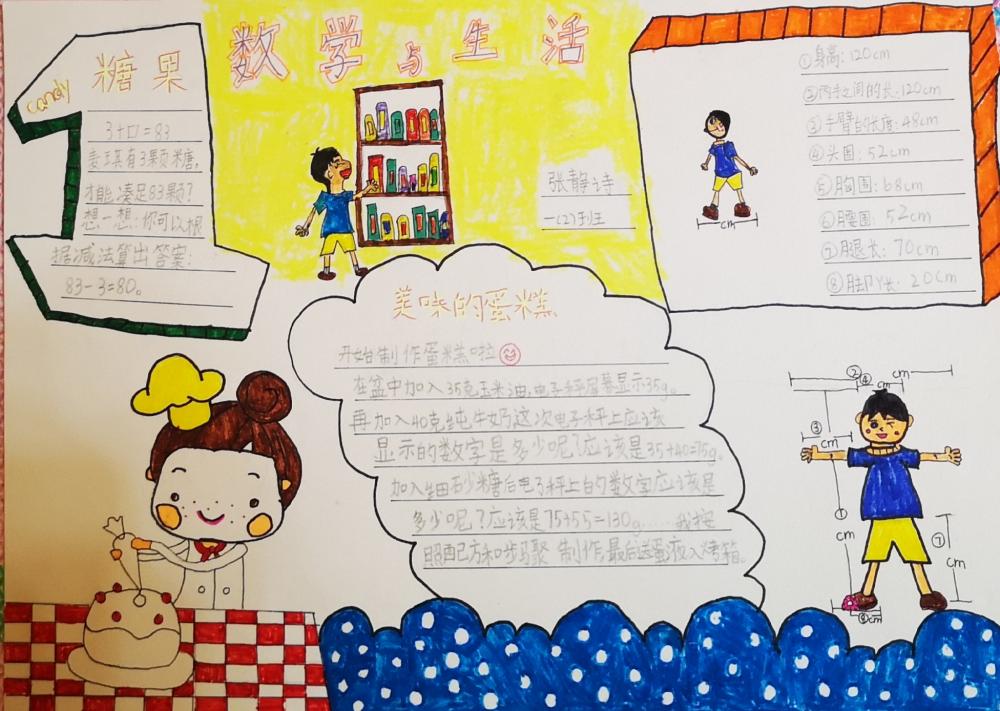 数学与生活
candy 糖果
3+口=83
麦琪有3颗糖,
才能凑足83颗?
想一想:你可以根
据减法算出答案:
83-3=80。
张静诗
一(2)班
①身高:120cm
②两手之间的长:120cm
③手臂的长度:48cm
④头围:52cm
⑤胸围:68cm
⑥腰围:52cm
⑦腿长:70cm
⑧脚丫长:20cm
cm
美味的蛋糕
开始制作蛋糕啦
在盆中加入35克玉米油,电子秤屏幕显示35g。
再加入40克纯牛奶这次电子秤上应该
显示的数字是多少呢?应该是35+40=75g。
加入细砂糖后电子秤上的数字应该是
多少呢?应该是75+55=130g……我按
照配方和步骤制作,最后送蛋液入烤箱。
② cm
④ cm
③ cm
cm
⑦ cm
⑧cm